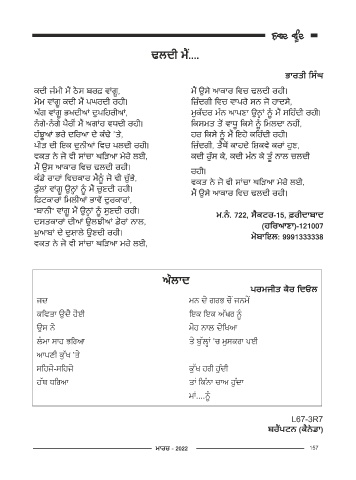 ਢਲਦੀ ਮੈਂ....
ਭਾਰਤੀ ਸਿੰਘ
ਕਦੀ ਜੰਮੀ ਮੈਂ ਠੋਸ ਬਰਫ਼ ਵਾਂਗੂ,
ਮੋਮ ਵਾਂਗੂ ਕਦੀ ਮੈਂ ਪਘਰਦੀ ਰਹੀ।
ਅੱਗ ਵਾਂਗੂ ਭਖਦੀਆਂ ਦੁਪਹਿਰੀਆਂ,
ਨੰਗੇ-ਨੰਗੇ ਪੈਰੀਂ ਮੈਂ ਅਗਾਂਹ ਵਧਦੀ ਰਹੀ।
ਹੰਝੂਆਂ ਭਰੇ ਦਰਿਆ ਦੇ ਕੰਢੇ 'ਤੇ,
ਪੀੜ ਦੀ ਇਕ ਦੁਨੀਆਂ ਵਿਚ ਪਲਦੀ ਰਹੀ।
ਵਕਤ ਨੇ ਜੋ ਵੀ ਸਾਂਚਾ ਘੜਿਆ ਮੇਰੇ ਲਈ,
ਮੈਂ ਉਸ ਆਕਾਰ ਵਿਚ ਢਲਦੀ ਰਹੀ।
ਕੰਡੇ ਰਾਹਾਂ ਵਿਚਕਾਰ ਮੈਨੂੰ ਜੋ ਵੀ ਚੁੱਭੇ,
ਫੁੱਲਾਂ ਵਾਂਗੂ ਉਨ੍ਹਾਂ ਨੂੰ ਮੈਂ ਚੁਣਦੀ ਰਹੀ।
ਫਿਟਕਾਰਾਂ ਮਿਲੀਆਂ ਭਾਵੇਂ ਦੁਰਕਾਰਾਂ,
"ਬਾਨੀ" ਵਾਂਗੂ ਮੈਂ ਉਨ੍ਹਾਂ ਨੂੰ ਸੁਣਦੀ ਰਹੀ।
ਦਸਤਕਾਰਾਂ ਦੀਆਂ ਉਲਝੀਆਂ ਡੋਰਾਂ ਨਾਲ,
ਖ਼ੁਆਬਾਂ ਦੇ ਦੁਸ਼ਾਲੇ ਉਣਦੀ ਰਹੀ।
ਵਕਤ ਨੇ ਜੋ ਵੀ ਸਾਂਚਾ ਘੜਿਆ ਮੇਰੇ ਲਈ,
ਮੈਂ ਉਸੇ ਆਕਾਰ ਵਿਚ ਢਲਦੀ ਰਹੀ।
ਜ਼ਿੰਦਗੀ ਵਿਚ ਵਾਪਰੇ ਸਨ ਜੋ ਹਾਦਸੇ,
ਮੁਕੱਦਰ ਮੰਨ ਆਪਣਾ ਉਨ੍ਹਾਂ ਨੂੰ ਮੈਂ ਸਹਿੰਦੀ ਰਹੀ।
ਕਿਸਮਤ ਤੋਂ ਵਾਧੂ ਕਿਸੇ ਨੂੰ ਮਿਲਦਾ ਨਹੀਂ,
ਹਰ ਕਿਸੇ ਨੂੰ ਮੈਂ ਇਹੋ ਕਹਿੰਦੀ ਰਹੀ।
ਜ਼ਿੰਦਗੀ, ਤੈਥੋਂ ਕਾਹਦੇ ਸ਼ਿਕਵੇ ਕਰਾਂ ਹੁਣ,
ਕਦੀ ਰੁੱਸ ਕੇ, ਕਦੀ ਮੰਨ ਕੇ ਤੂੰ ਨਾਲ ਚਲਦੀ
ਰਹੀ।
ਵਕਤ ਨੇ ਜੋ ਵੀ ਸਾਂਚਾ ਘੜਿਆ ਮੇਰੇ ਲਈ,
ਮੈਂ ਉਸੇ ਆਕਾਰ ਵਿਚ ਢਲਦੀ ਰਹੀ।
ਮ.ਨੰ. 722, ਸੈਕਟਰ-15, ਫ਼ਰੀਦਾਬਾਦ
(ਹਰਿਆਣਾ)-121007
ਮੋਬਾਇਲ: 9991333338
ਔਲਾਦ
ਪਰਮਜੀਤ ਕੌਰ ਦਿਓਲ
ਜਦ
ਕਵਿਤਾ ਉਦੈ ਹੋਈ
ਉਸ ਨੇ
ਲੰਮਾ ਸਾਹ ਭਰਿਆ
ਆਪਣੀ ਕੁੱਖ 'ਤੇ
ਸਹਿਜੇ-ਸਹਿਜੇ
ਹੱਥ ਧਰਿਆ
ਮਨ ਦੇ ਗਰਭ ਚੋਂ ਜਨਮੇਂ
ਇਕ ਇਕ ਅੱਖਰ ਨੂੰ
ਮੋਹ ਨਾਲ ਦੇਖਿਆ
ਤੇ ਬੁੱਲ੍ਹਾਂ 'ਚ ਮੁਸਕਰਾ ਪਈ
ਕੁੱਖ ਹਰੀ ਹੁੰਦੀ
ਤਾਂ ਕਿੰਨਾ ਚਾਅ ਹੁੰਦਾ
ਮਾਂ....ਨੂੰ
L67-3R7
ਬਰੈਂਪਟਨ (ਕੈਨੇਡਾ)
ਮਾਰਚ - 2022
157